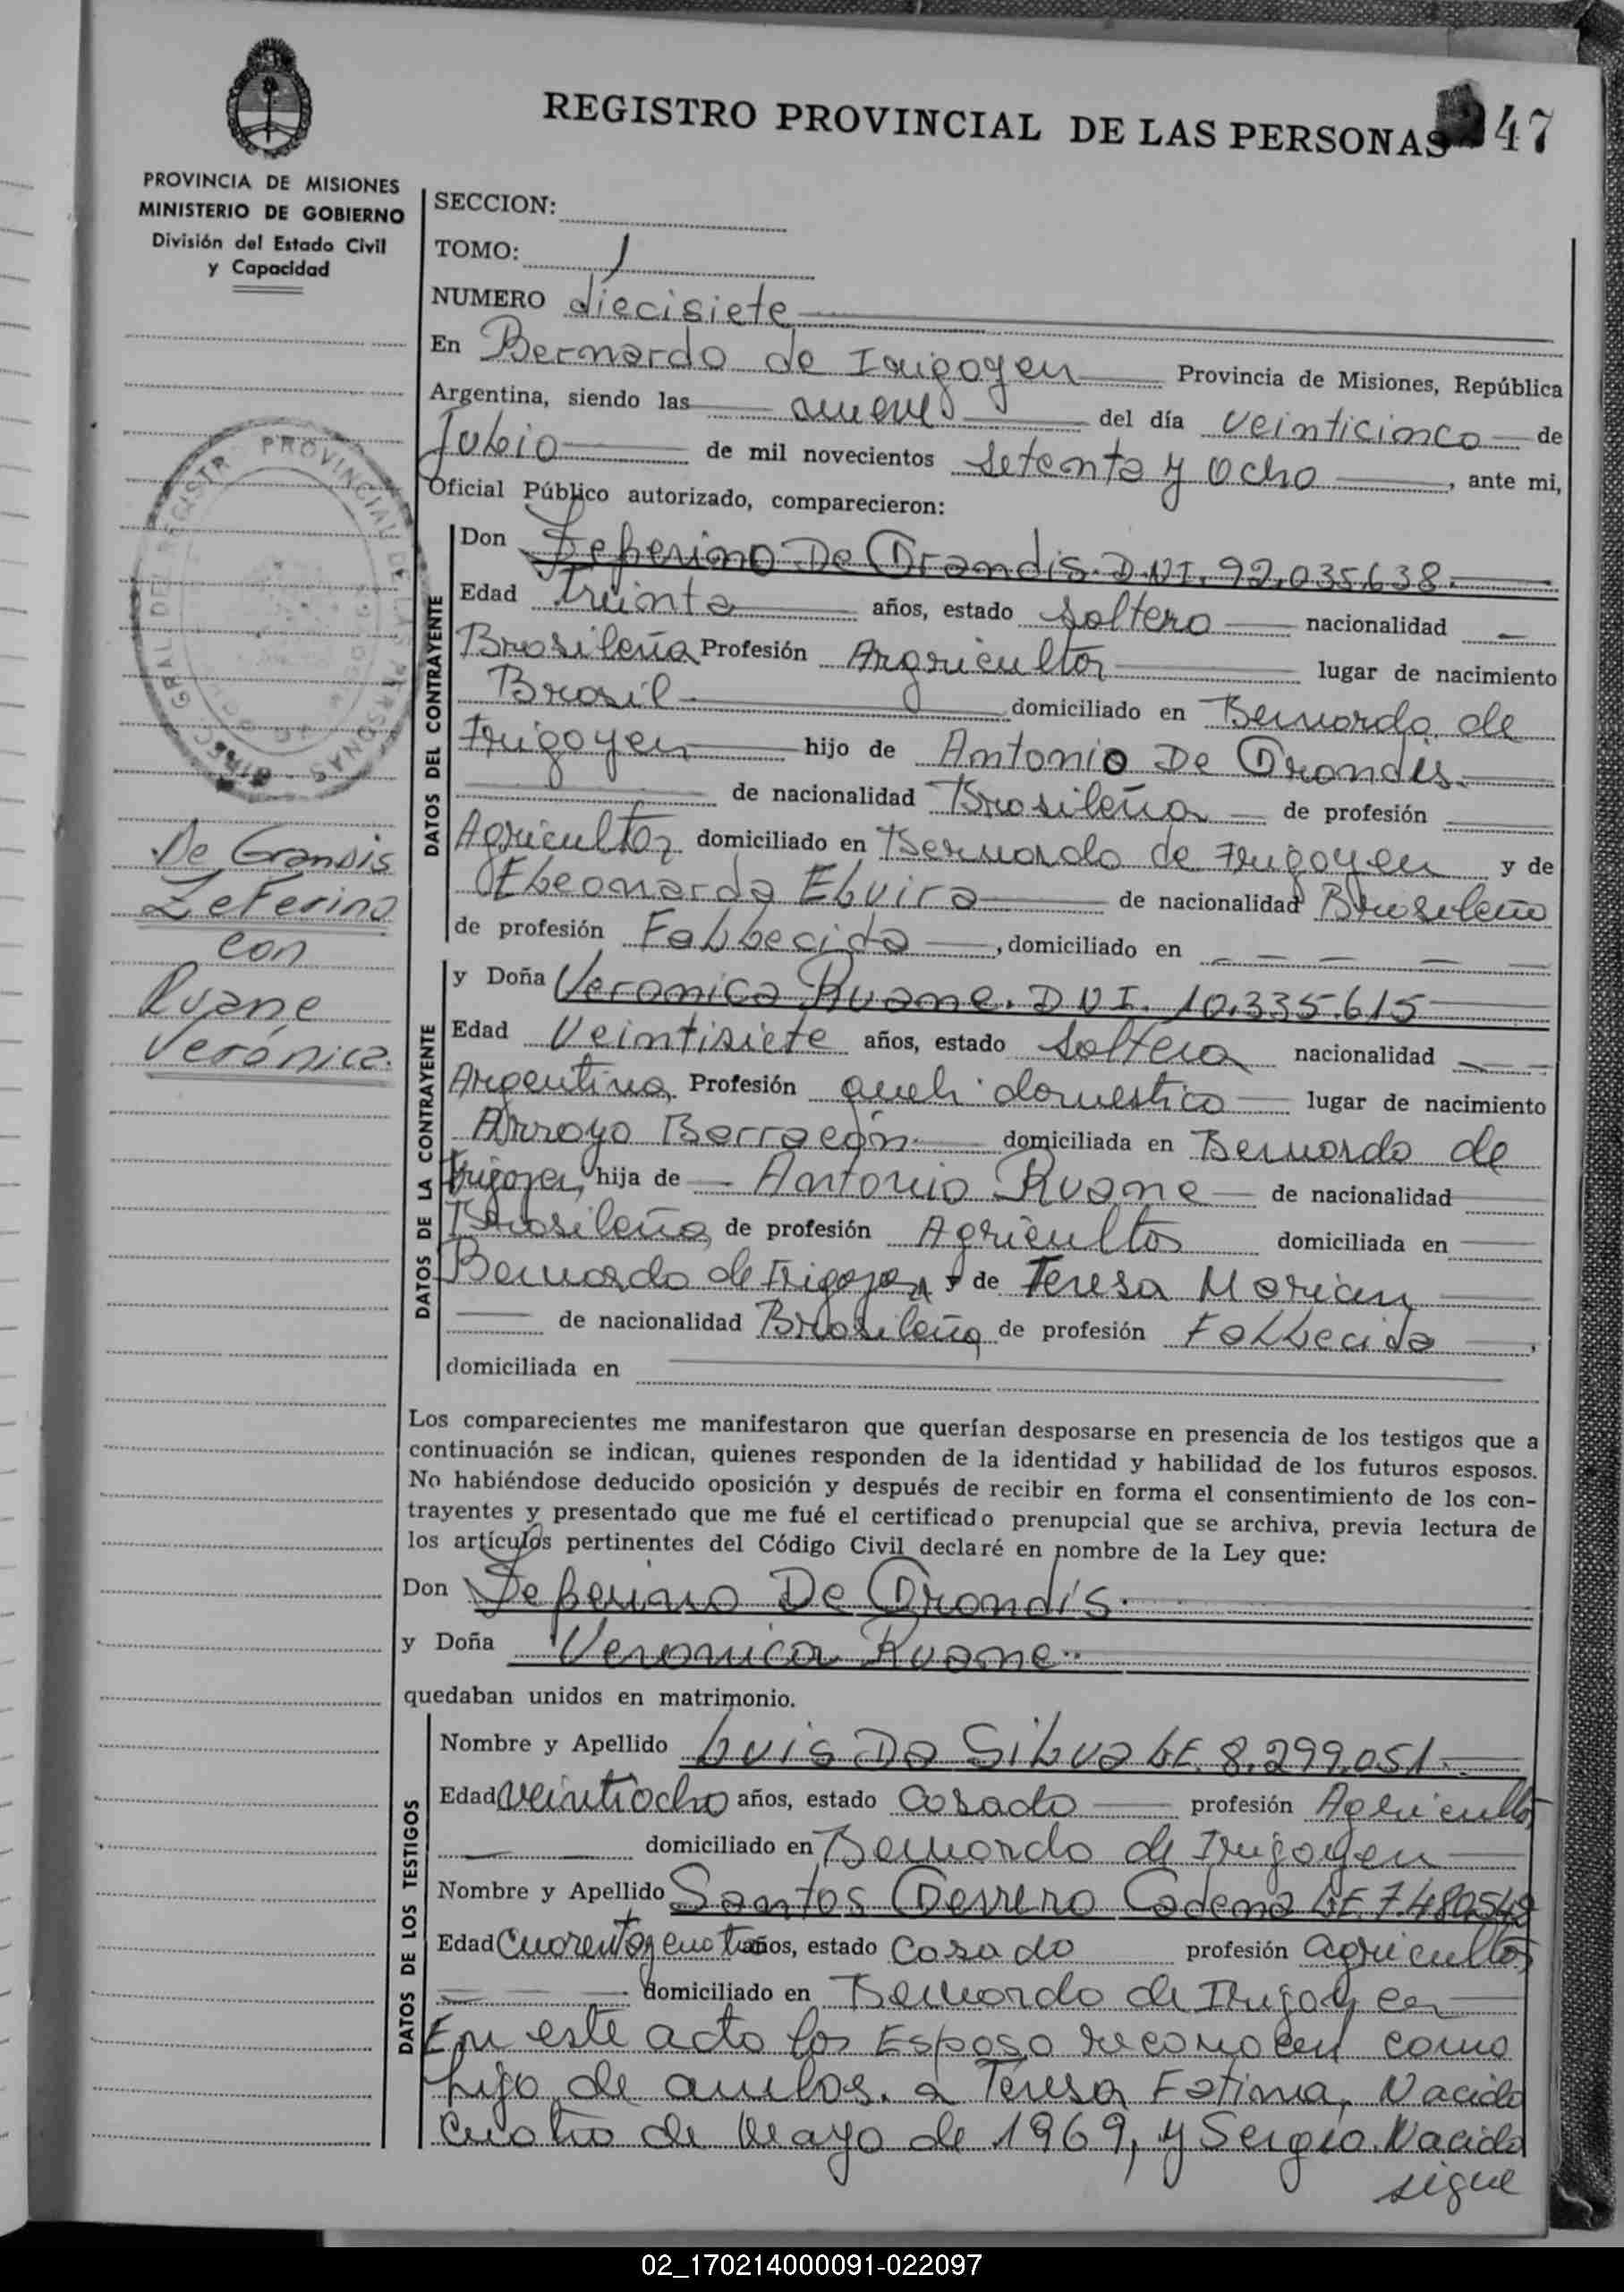 REGISTRO PROVINCIAL DE LAS PERSONAS 47
PROVINCIA DE MISIONES
MINISTERIO DE GOBIERNO
División del Estado Civil
y Capacidad
SECCION:
TOMO: 1
NUMERO diecisiete
En Bernardo de Irigoyen Provincia de Misiones, República
Argentina, siendo las nueve del día veinticinco de
Julio de mil novecientos setenta y ocho, ante mi,
Oficial Público autorizado, comparecieron:
DATOS DEL CONTRAYENTE
Don Zeferino De Grandis. D.N.I. 92.035.638.
Edad treinta años, estado soltero nacionalidad
Brasileña Profesión Argricultor lugar de nacimiento
Brasil domiciliado en Bernardo de
Irigoyen hijo de Antonio De Grandis.
de nacionalidad Brasileña de profesión
Agricultor domiciliado en Bernardo de Irigoyen y de
Eleonarda Elvira de nacionalidad Brasileña
de profesión Fallecida, domiciliado en
DATOS DE LA CONTRAYENTE
y Doña Veronica Ruane. D.N.I. 10.335.615
Edad Veintisiete años, estado Soltera nacionalidad
Argentina Profesión queh. domestico lugar de nacimiento
Arroyo Barracón domiciliada en Bernardo de
Irigoyen, hija de Antonio Ruane de nacionalidad
Brasileña de profesión Agricultor domiciliada en
Bernardo de Irigoyen y de Teresa Marian
de nacionalidad Brasileña de profesión Fallecida,
domiciliada en
De Grandis
Zeferino
con
Ruane
Verónica.
REGISTRO PROVINCIAL DE LAS PERSONAS
Los comparecientes me manifestaron que querían desposarse en presencia de los testigos que a
continuación se indican, quienes responden de la identidad y habilidad de los futuros esposos.
No habiéndose deducido oposición y después de recibir en forma el consentimiento de los con-
trayentes y presentado que me fué el certificado prenupcial que se archiva, previa lectura de
los artículos pertinentes del Código Civil declaré en nombre de la Ley que:
Don Zeferino De Grandis.
y Doña Veronica Ruane.
quedaban unidos en matrimonio.
DATOS DE LOS TESTIGOS
Nombre y Apellido Luis Da Silva L.E. 8.299.051.
Edad veintiocho años, estado Casado profesión Agricultor
domiciliado en Bernardo de Irigoyen
Nombre y Apellido Santos Cadena L.E. 7.480.549
Edad Cuarenta y cuatro años, estado Casado profesión agricultor
domiciliado en Bernardo de Irigoyen
En este acto los Esposo reconocen como
hijo de ambos. a Teresa Fatima, Nacida
cuatro de Mayo de 1969, y Sergio. Nacido
sigue
02_170214000091-022097